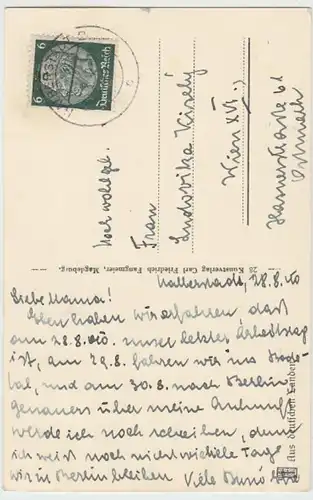 Halberstadt, 28.8.40
Liebe Mama!
Eben haben wir erfahren, daß
am 28.8.40. unser letzter Arbeitstag
ist, am 29.8. fahren wir ins Bode-
tal, und am 30.8. nach Berlin
genaueres über meine Ankunft
werde ich noch schreiben, denn
ich weiß noch nicht wieviele Tage
wir in Berlin bleiben Viele Bussi
28 Kunstverlag Carl Friedrich Fangmeier, Magdeburg.
Aus deutschen Landen
Hochwohlgeb.
Frau
Ludovika Kisely
Wien XVI.,
Hasnerstraße 61
Ostmark
6 Deutsches Reich 6